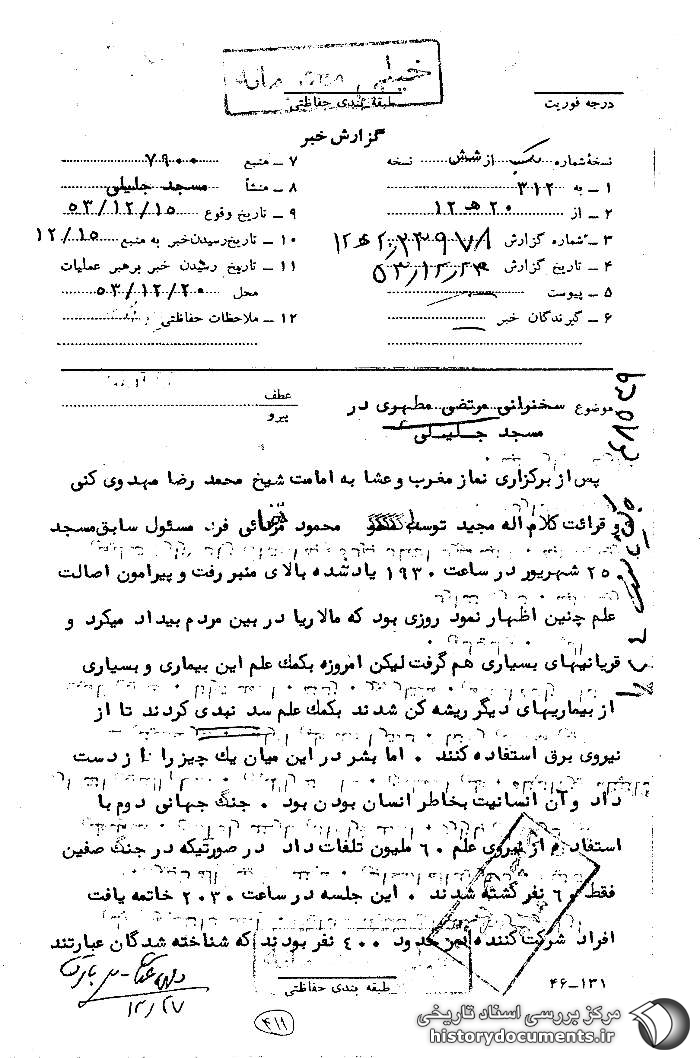 خیلی محرمانه
طبقه بندی حفاظتی
درجه فوریت
گزارش خبر
نسخهٔ شماره یک از شش نسخه
۱ ـ به ۳۱۲
۲ ـ از ۲۰ هـ ۱۲
۳ ـ شماره گزارش
۴ ـ تاریخ گزارش
۵ ـ پیوست
۶ ـ گیرندگان خبر
۷ ـ منبع ۷۹۰۰
۸ ـ منشأ مسجد جلیلی
۹ ـ تاریخ وقوع ۵۳/۱۲/۱۵
۱۰ ـ تاریخ رسیدن خبر به منبع ۱۲/۱۵
۱۱ ـ تاریخ رسیدن خبر برهبر عملیات
محل ۵۳/۱۲/۲۰
۱۲ ـ ملاحظات حفاظتی
موضوع سخنرانی مرتضی مطهری در
مسجد جلیلی
عطف
پیرو
پس از برگزاری نماز مغرب و عشا به امامت شیخ محمد رضا مهدوی کنی
و قرائت کلام اله مجید توسط محمود فرد مسئول سابق مسجد
۲۵ شهریور در ساعت ۱۹۳۰ یادشده بالای منبر رفت و پیرامون اصالت
علم چنین اظهار نمود روزی بود که مالاریا در بین مردم بیداد میکرد و
قربانیهای بسیاری هم گرفت لیکن امروزه بکمك علم این بیماری و بسیاری
از بیماریهای دیگر ریشه کن شدند بکمك علم سد نبدی کردند تا از
نیروی برق استفاده کنند . اما بشر در این میان یك چیز را از دست
داد و آن انسانیت بخاطر انسان بودن بود . جنگ جهانی دوم با
استفاده از نیروی علم ۶۰ ملیون تلفات داد در صورتیکه در جنگ صفین
فقط ۶۰ نفر کشته شدند . این جلسه در ساعت ۲۰۳۰ خاتمه یافت
افراد شرکت کننده حدود ۴۰۰ نفر بودند که شناخته شدگان عبارتند
طبقه بندی حفاظتی
۴۶-۱۳۱
۱۲/۲۷
۴۱۱
مرکز بررسی اسناد تاریخی
historydocuments.ir